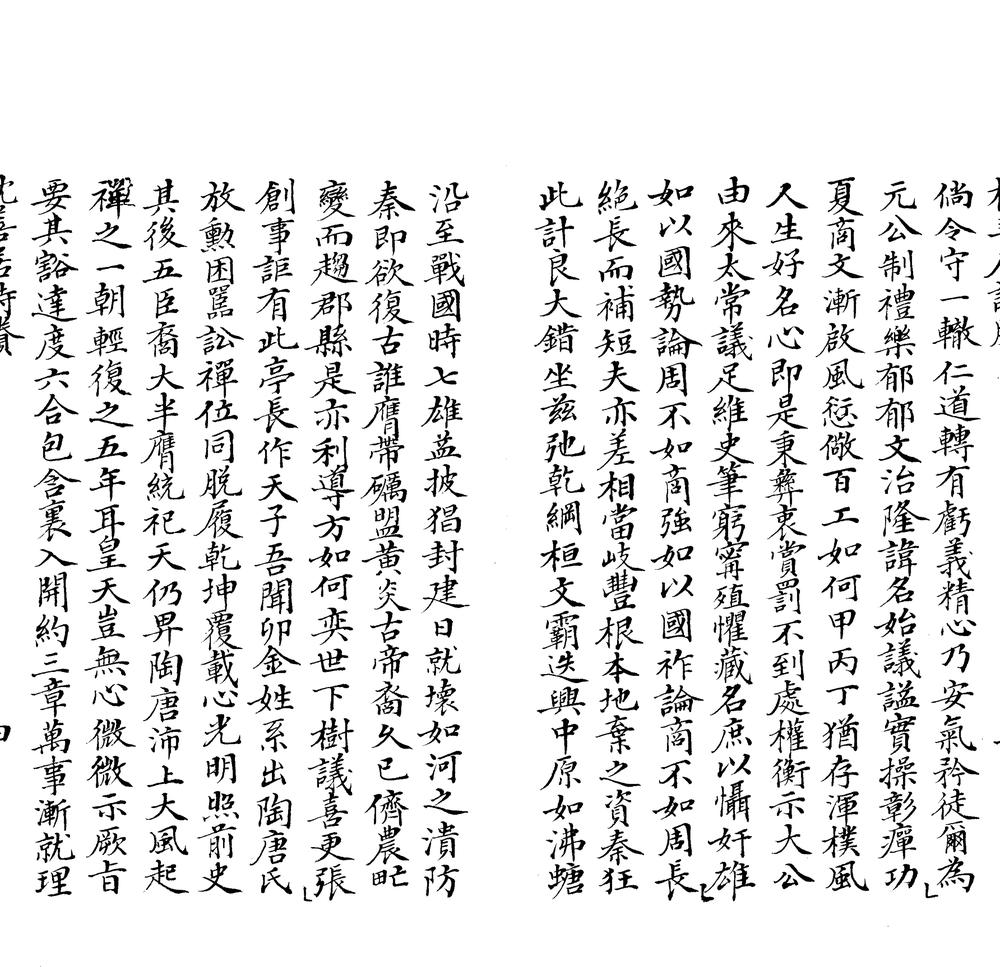 倘令守一轍仁道轉有虧義精心乃安氣矜徒爾為
元公制禮樂郁郁文治隆諱名始議謚實操彰癉功
夏商文漸啟風愆儆百工如何甲丙丁猶存渾樸風
人生好名心即是秉彝衷賞罰不到處權衡示大公
由來太常議足維史筆窮寗殖懼藏名庶以懾奸雄
如以國勢論周不如商強如以國祚論商不如周長
絕長而補短夫亦差相當岐豐根本地棄之資秦狂
此計良大錯坐茲弛乾綱桓文霸迭興中原如沸螗
沿至戰國時七雄益披猖封建日就壞如河之潰防
秦即欲復古誰膺帶礪盟黃炎古帝裔久已儕農甿
變而趨郡縣是亦利導方如何奕世下樹議喜更張
創事詎有此亭長作天子吾聞卯金姓系出陶唐氏
放勳困嚚訟禪位同脫屣乾坤覆載心光明照前史
其後五臣裔大半膺統祀天仍畀陶唐沛上大風起
禪之一朝輕復之五年耳皇天豈無心微微示厥旨
要其豁達度六合包含裏入關約三章萬事漸就理